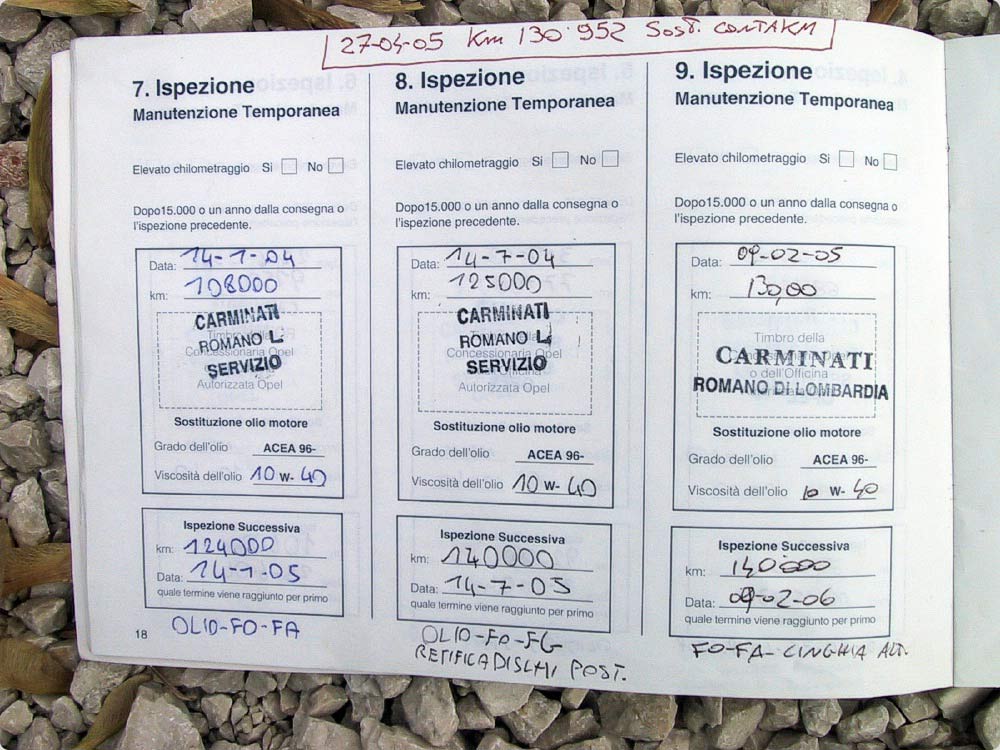 27-04-05 Km 130.952 SOST. CONTAKM
7. Ispezione
Manutenzione Temporanea
Elevato chilometraggio Si No
Dopo15.000 o un anno dalla consegna o
l'ispezione precedente.
Data: 14-1-04
km: 108000
CARMINATI
ROMANO L.
SERVIZIO
Timbro della
Concessionaria Opel
Autorizzata Opel
Sostituzione olio motore
Grado dell'olio ACEA 96-
Viscosità dell'olio 10 W- 40
Ispezione Successiva
km: 124000
Data: 14-1-05
quale termine viene raggiunto per primo
18
OLIO-FO-FA
8. Ispezione
Manutenzione Temporanea
Elevato chilometraggio Si No
Dopo15.000 o un anno dalla consegna o
l'ispezione precedente.
Data: 14-7-04
km: 125000
CARMINATI
ROMANO L.
SERVIZIO
Timbro della
Concessionaria Opel
o dell'Officina
Autorizzata Opel
Sostituzione olio motore
Grado dell'olio ACEA 96-
Viscosità dell'olio 10 W- 40
Ispezione Successiva
km: 140000
Data: 14-7-05
quale termine viene raggiunto per primo
OLIO-FO-FG
RETIFICA DISCHI POST.
9. Ispezione
Manutenzione Temporanea
Elevato chilometraggio Si No
Dopo15.000 o un anno dalla consegna o
l'ispezione precedente.
Data: 09-02-05
km: 130,00
Timbro della
Concessionaria Opel
o dell'Officina
Autorizzata Opel
CARMINATI
ROMANO DI LOMBARDIA
Sostituzione olio motore
Grado dell'olio ACEA 96-
Viscosità dell'olio 10 W- 40
Ispezione Successiva
km: 140000
Data: 09-02-06
quale termine viene raggiunto per primo
FO-FA-CINGHIA ALT.